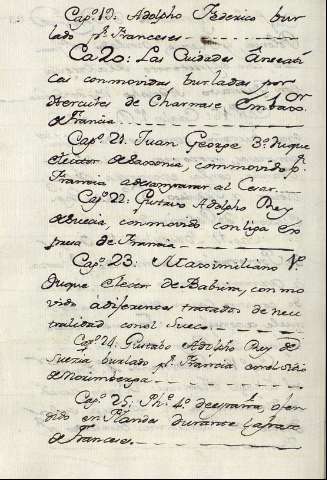 Capº. 19. Adolpho Federico bur
lado pr. Franceses
Ca. 20: Las Ciudades Anseati
cas conmovidas burladas por
Hercules de Charnase Embaxor.
de Francia
Capº. 21. Juan George 3º. Duque
Elector de Saxonia, conmovido pr.
Francia a desamparar al Cesar
Capº. 22: Gustavo Adolpho Rey
de Suecia, conmovido con liga Ex
presa de Francia
Capº. 23: Maximiliano 1º.
Duque Elector de Babiera, conmo
vido a diferentes tratados de neu
tralidad con el Sueco
Capº. 24. Gustabo Adolpho Rey de
Suezia burlado pr. Francia con el sitio
de Nourimberga
Capº. 25: Phe. 4º. de españa, ofen
dido en Flandes durante la paz
de Franceses